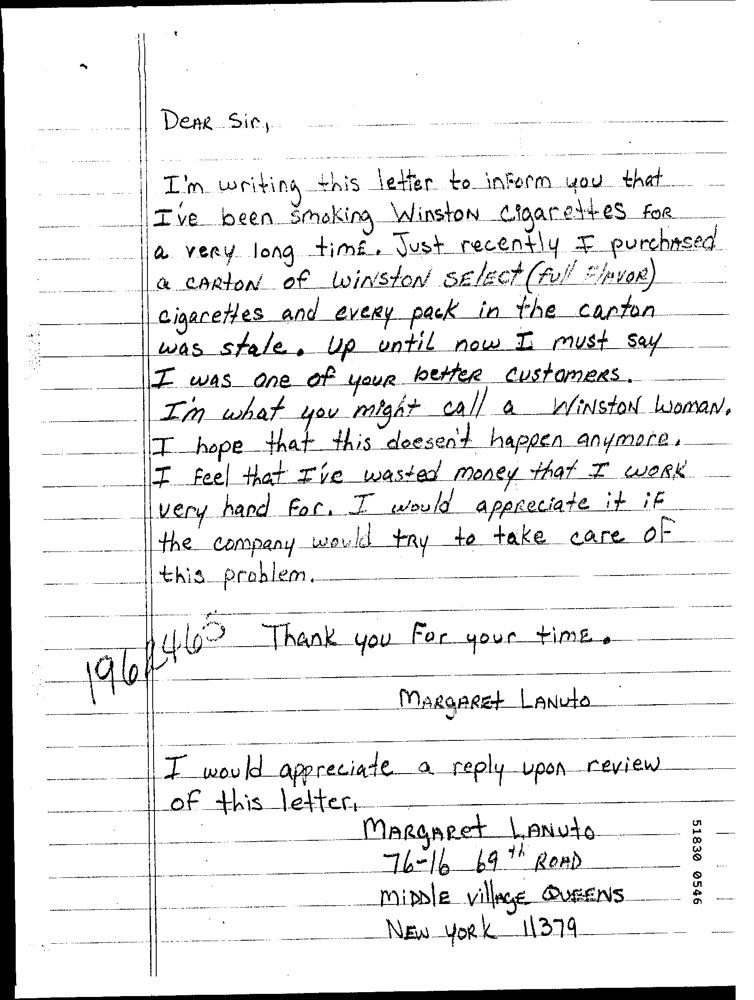 Dear Sir,
I'm writing this letter to inform you that
I've been smoking Winston cigarettes for
a very long time. Just recently I purchased
a carton of Winston Select (full flavor)
cigarettes and every pack in the carton
was stale. Up until now I must say
I was one of your better customers.
I'm what you might call a Winston Woman.
I hope that this doesen't happen anymore.
I feel that I've wasted money that I work
very hard for. I would appreciate it if
the company would try to take care of
this problem.
Thank you for your time.
Margaret Lanuto
I would appreciate a reply upon review
of this letter.
Margaret Lanuto
76-16 69th Road
Middle Village Queens
New York 11379
51830 0546